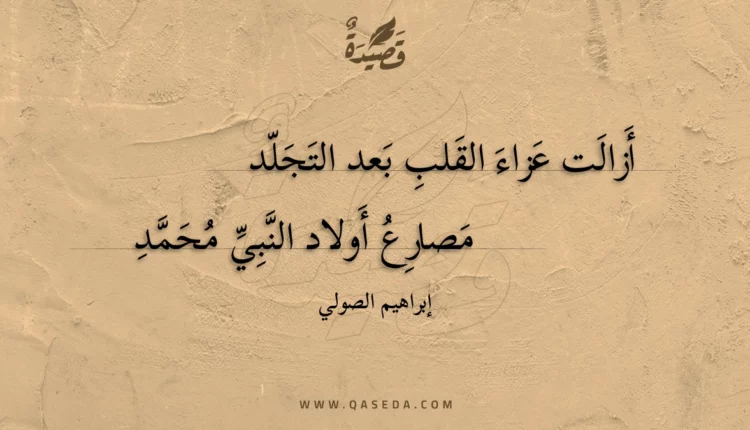 قَصِيدَةٌ
أَزالَت عَزاءَ القَلبِ بَعد التَجَلّد
مَصارِعُ أَولاد النَّبِيِّ مُحَمَّدِ
إبراهيم الصولي
WWW.QASEDA.COM